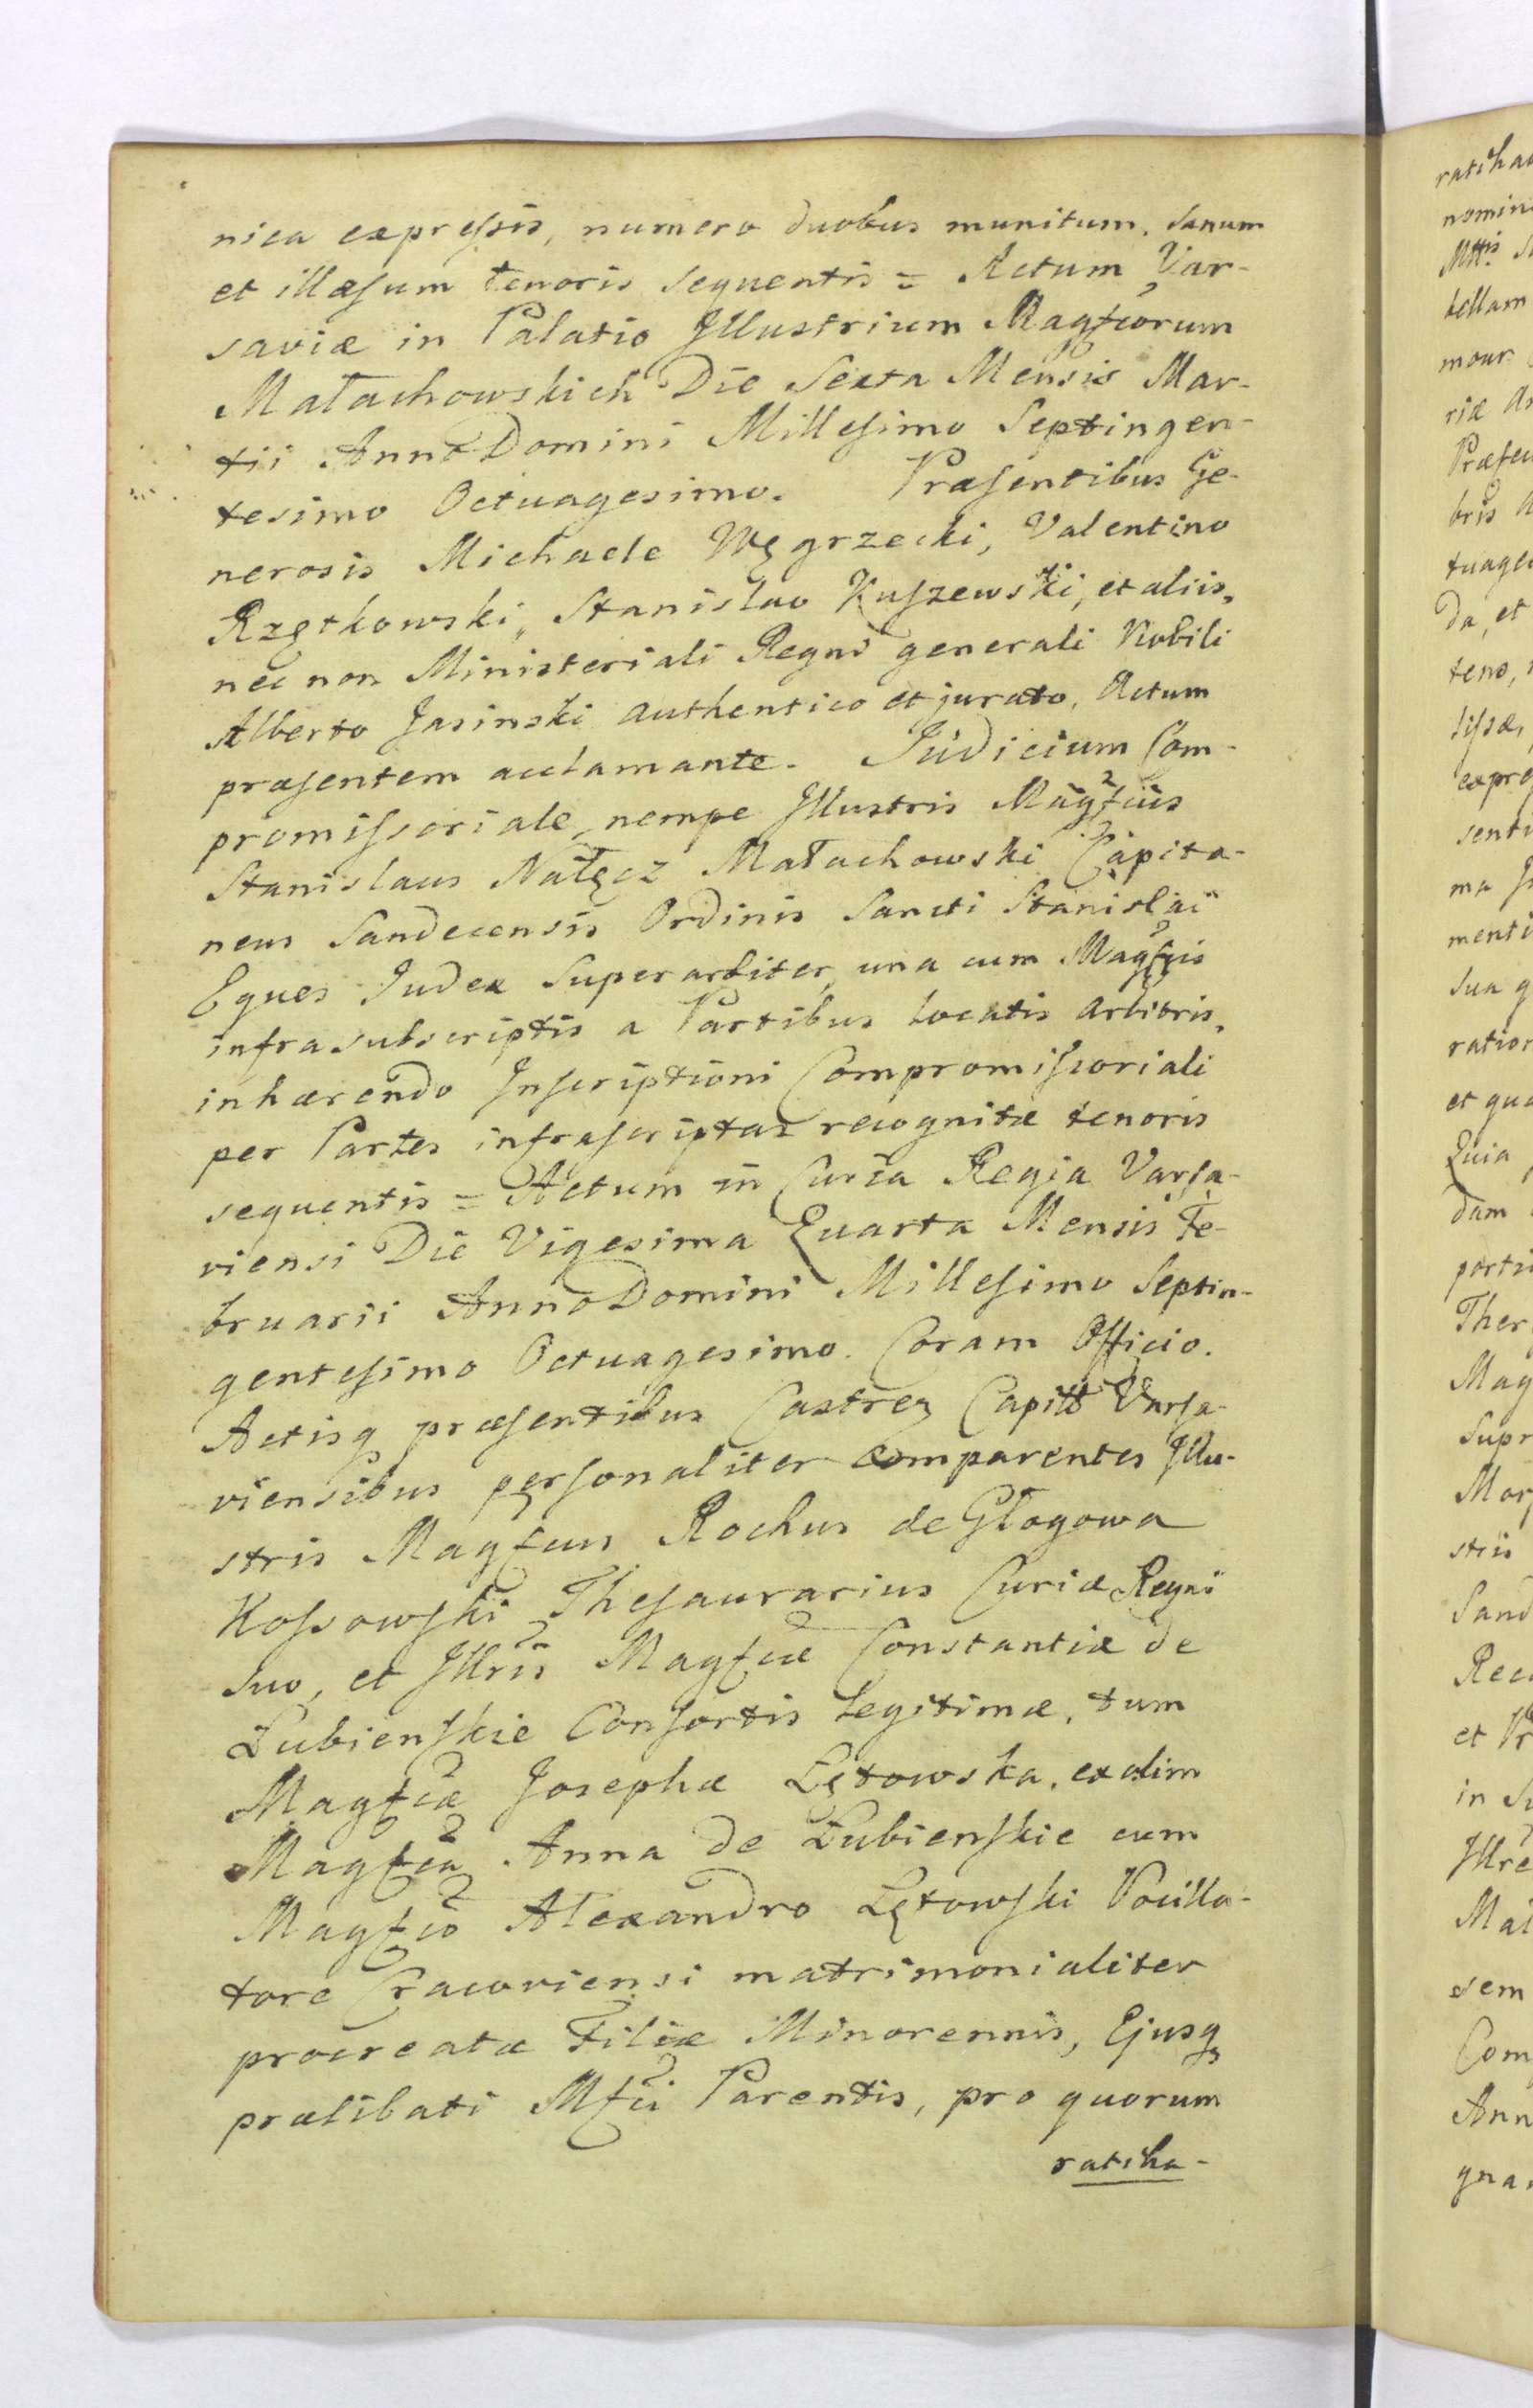 nica expressis, numero duobus munitum, sanum
et illæsum tenoris sequentis = Actum Var-
saviæ in Palatio Illustrium Magfcorum
Małachowskich Die Sexta Mensis Mar-
tii Anno Domini Millesimo Septingen-
tesimo Octuagesimo. Præsentibus Ge-
nerosis Michaele Węgrzecki, Valentino
Rzętkowski, Stanislao Kuszewski, et aliis,
nec non Ministeriali Regni generali Nobili
Alberto Jasinski authentico et jurato, Actum
præsentem acclamante. Judicium Com-
promissoriale, nempe Illustris Magfcus
Stanislaus Nałęcz Małachowski Capita-
neus Sandecensis Ordinis Sancti Stanislai
Eques Judex Superarbiter, una cum Magfcis
infrasubscriptis a Partibus locatis arbitris,
inhærendo Inscriptioni Compromissoriali
per Partes infrascriptas recognitæ tenoris
sequentis = Actum in Curia Regia Varsa-
viensi Die Vigesima Quarta Mensis Fe-
bruarii Anno Domini Millesimo Septin-
gentesimo Octuagesimo. Coram Officio.
Actisq præsentibus Castren Capitt Varsa-
viensibus personaliter comparentes Illu-
stris Magfcus Rochus de Głogowa
Kossowski Thesaurarius Curiæ Regni
suo, et Illris Magfcæ Constantiæ de
Łubienskie Consortis Legitimæ, tum
Magfcæ Josephæ Łętowska, ex olim
Magfca Anna de Łubienskie cum
Magfco Alexandro Łętowski Pocilla-
tore Cracoviensi matrimonialiter
procreatæ Filiæ Minorennis, Ejusq
prælibati Mfci Parentis, pro quorum
ratiha-
ratiha
nomin
Mttis
tellam
mour
riæ
Præfe
bris
tuage
da, et
teno,
expre
senti
ma
menti
sua q
ration
et qua
Quia
dam
porti
Ther
Mag
Supr
Mor
striis
Sand
Rec
et Pr
in Su
Illre
Mał
sem
Com
Ann
gna